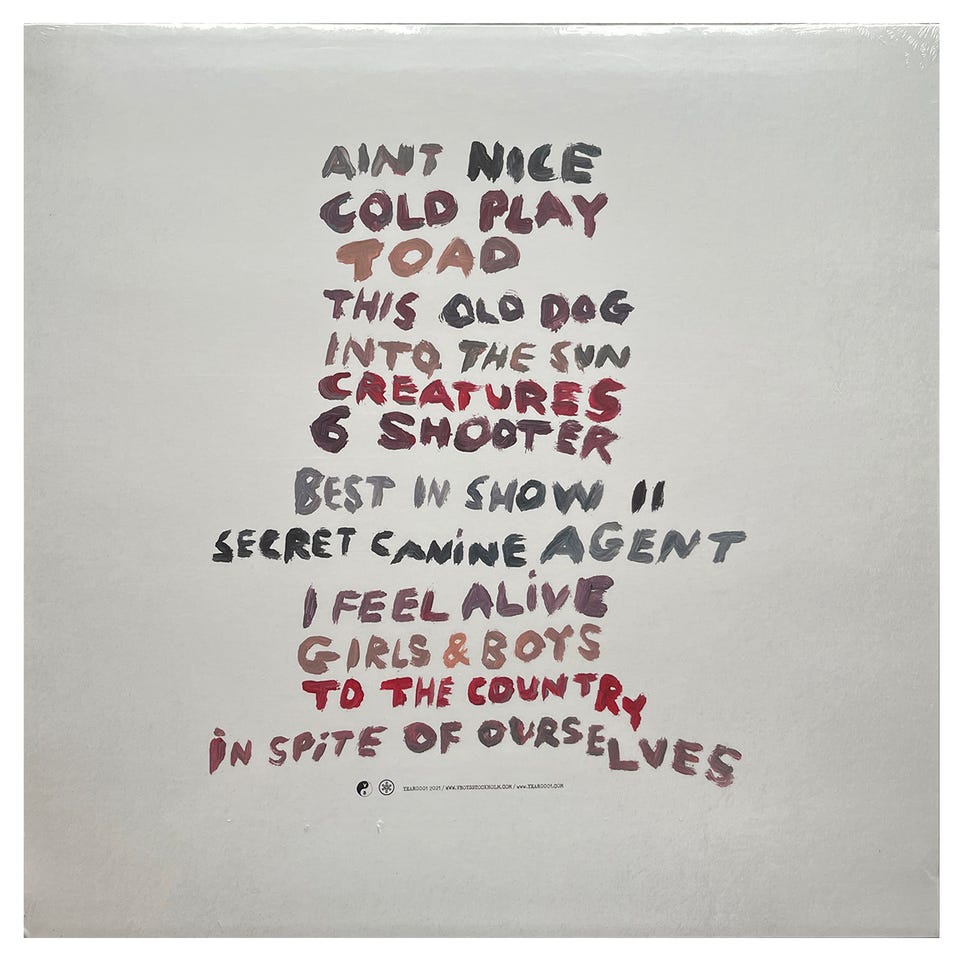 AINT NICE
COLD PLAY
TOAD
THIS OLD DOG
INTO THE SUN
CREATURES
6 SHOOTER
BEST IN SHOW II
SECRET CANiNE AGENT
I FEEL ALiVE
GIRLS & BOYS
TO THE COUNTRY
iN SPiTE OF OURSELVES
YEAR0001 2021 / WWW.VBOYSSTOCKHOLM.COM / WWW.YEAR0001.COM